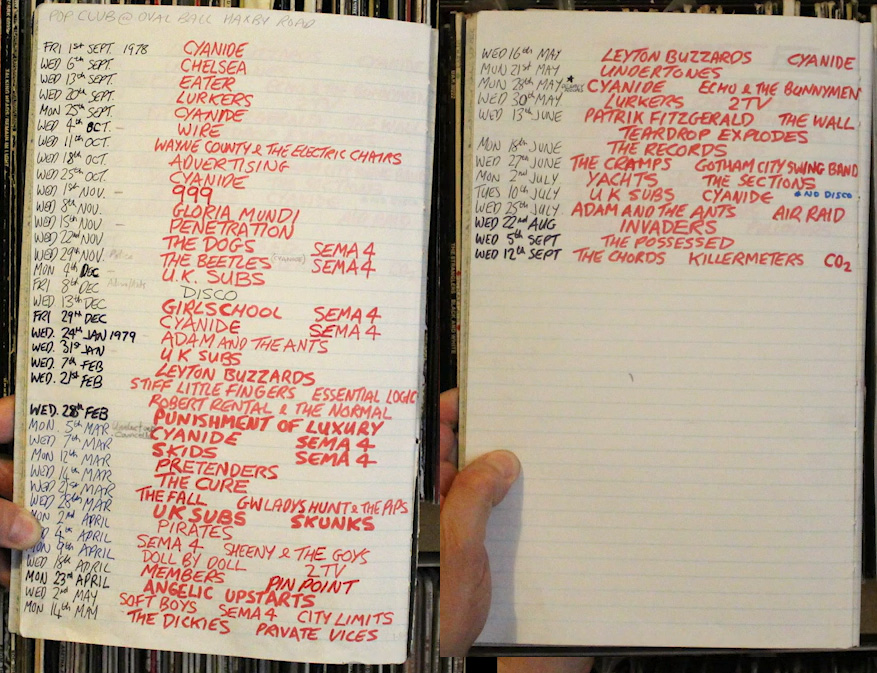 POP CLUB @ OVAL BALL HAXBY ROAD
FRI 1st SEPT. 1978 CYANIDE
WED 6th SEPT. CHELSEA
WED 13th SEPT. EATER
WED 20th SEPT. LURKERS
MON 25th SEPT. CYANIDE
WED 4th OCT. WIRE
WED 11th OCT. WAYNE COUNTY & THE ELECTRIC CHAIRS
WED 18th OCT. ADVERTISING
WED 25th OCT. CYANIDE
WED 1st NOV. 999
WED 8th NOV. GLORIA MUNDI
WED 15th NOV. PENETRATION
WED 22nd NOV THE DOGS SEMA 4
WED 29th NOV. THE BEETLES (CYANIDE) SEMA 4
MON 4th DEC U.K. SUBS
FRI 8th DEC DISCO
WED 13th DEC GIRLSCHOOL SEMA 4
FRI 29th DEC CYANIDE SEMA 4
WED. 24th JAN 1979 ADAM AND THE ANTS
WED. 31st JAN UK SUBS
WED. 7th FEB LEYTON BUZZARDS
WED. 21st FEB STIFF LITTLE FINGERS ESSENTIAL LOGIC
ROBERT RENTAL & THE NORMAL
WED. 28th FEB PUNISHMENT OF LUXURY
MON. 5th MAR CYANIDE SEMA 4
WED. 7th MAR SKIDS SEMA 4
MON 12th MAR PRETENDERS
WED 14th MAR THE CURE
WED 21st MAR THE FALL GWLADYS HUNT & THE PIPS
WED 28th MAR UK SUBS SKUNKS
MON 2nd APRIL PIRATES
WED 4th APRIL SEMA 4 SHEENY & THE GOYS
MON 9th APRIL DOLL BY DOLL 2TV
WED 18th APRIL MEMBERS PIN POINT
MON 23rd APRIL ANGELIC UPSTARTS
WED 2nd MAY SOFT BOYS SEMA 4 CITY LIMITS
MON 14th MAY THE DICKIES PRIVATE VICES
WED 16th MAY LEYTON BUZZARDS CYANIDE
MON 21st MAY UNDERTONES
MON 28th MAY * CYANIDE ECHO & THE BUNNYMEN
WED 30th MAY LURKERS 2TV
WED 13th JUNE PATRIK FITZGERALD THE WALL
TEARDROP EXPLODES
MON 18th JUNE THE RECORDS
WED 27th JUNE THE CRAMPS GOTHAM CITY SWING BAND
MON 2nd JULY YACHTS THE SECTIONS
TUES 10th JULY UK SUBS CYANIDE * NO DISCO
WED 25th JULY ADAM AND THE ANTS AIR RAID
WED 22nd AUG INVADERS
WED 5th SEPT THE POSSESSED
WED 12th SEPT THE CHORDS KILLERMETERS CO2